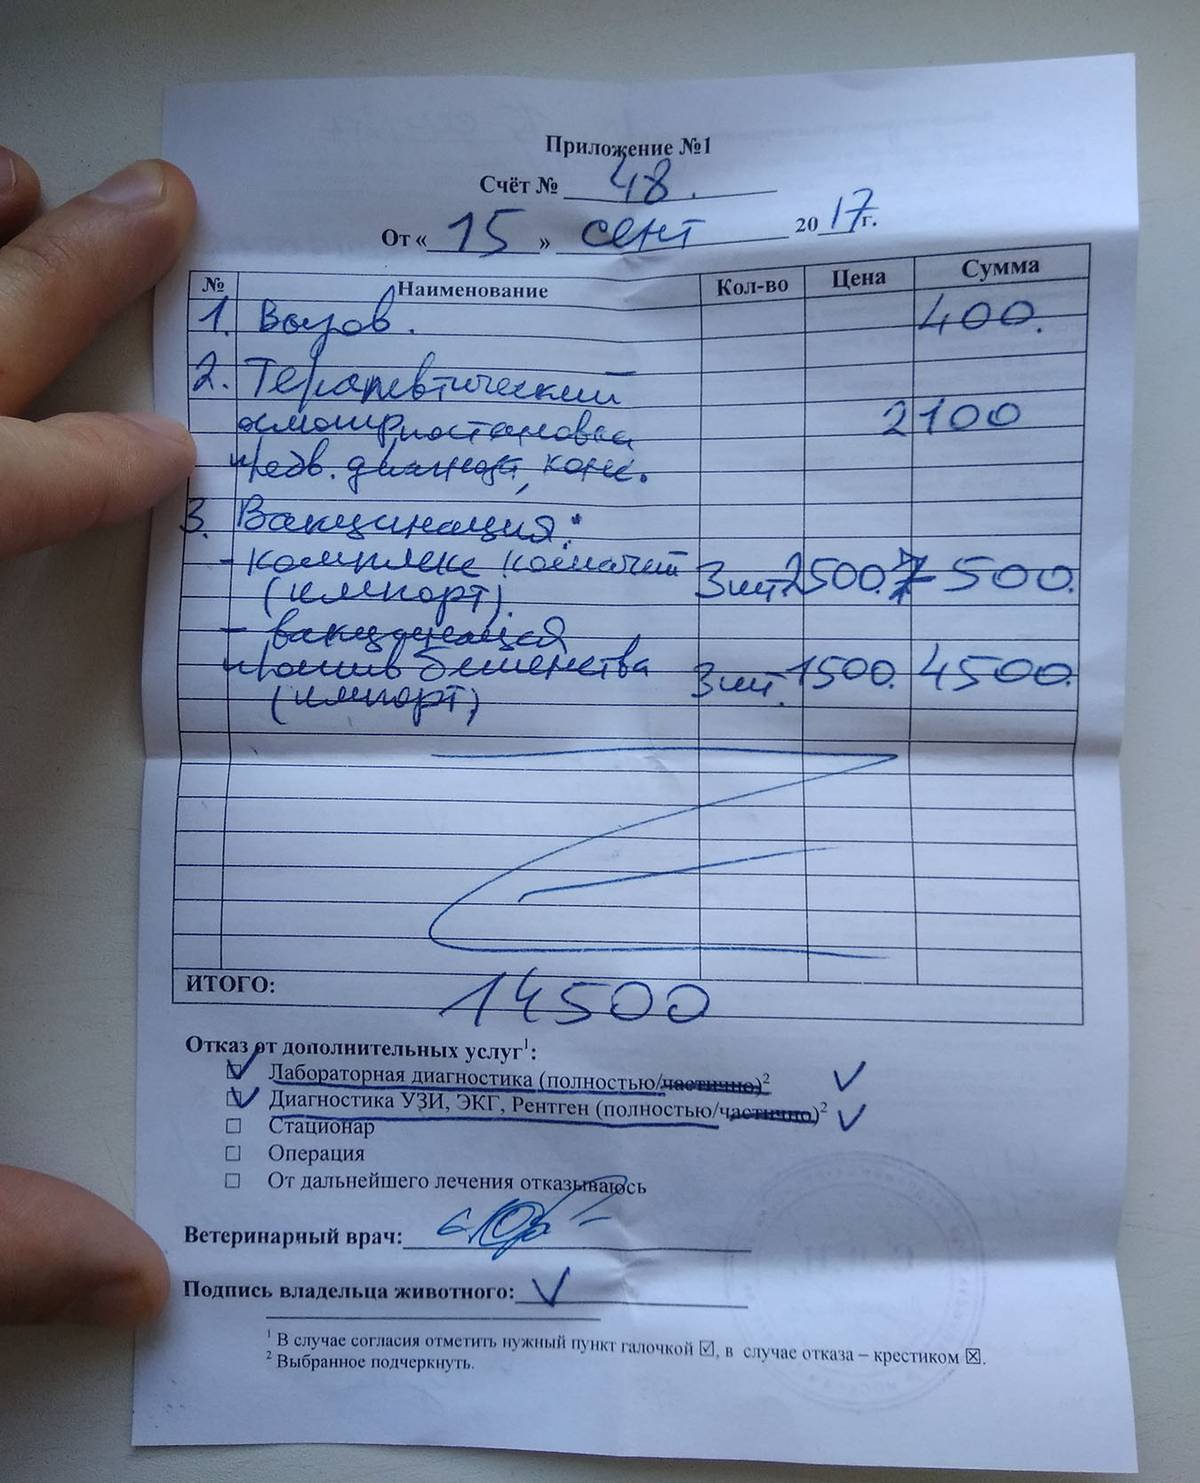 Приложение №1
Счёт № 48.
От « 15 » сент 2017г.
№ Наименование Кол-во Цена Сумма
1. Вызов. 400.
2. Терапевтический
осмотр, постановка 2100
предв. диагноза, конс.
3. Вакцинация:
- комплекс кошачий 3шт. 2500. 7500.
(импорт).
- вакцинация
против бешенства 3шт. 1500. 4500.
(импорт)
ИТОГО: 14500
Отказ от дополнительных услуг¹:
☑ Лабораторная диагностика (полностью/частично)² ✓
☑ Диагностика УЗИ, ЭКГ, Рентген (полностью/частично)² ✓
☐ Стационар
☐ Операция
☐ От дальнейшего лечения отказываюсь
Ветеринарный врач:
Подпись владельца животного: ✓
¹ В случае согласия отметить нужный пункт галочкой ☑, в случае отказа – крестиком ☒.
² Выбранное подчеркнуть.